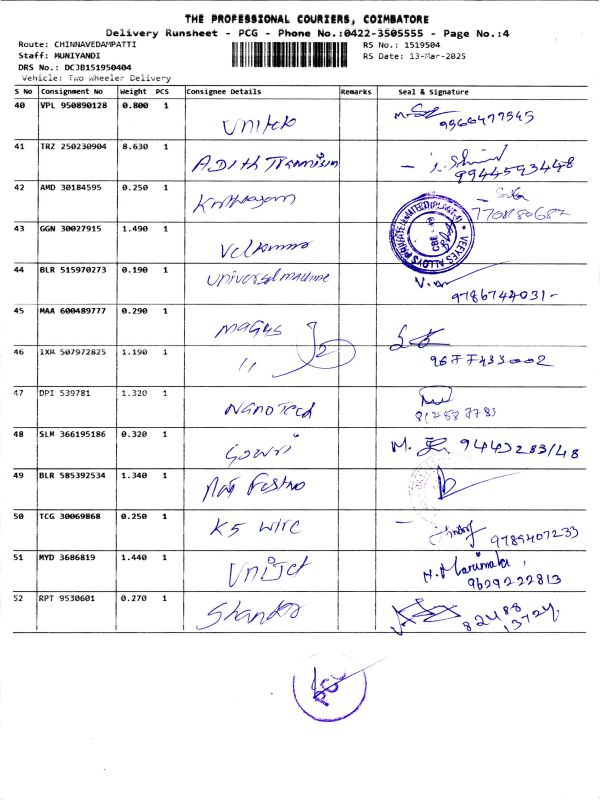 THE PROFESSIONAL COURIERS, COIMBATORE
Delivery Runsheet - PCG - Phone No.:0422-3505555 - Page No.:4
Route: CHINNAVEDAMPATTI RS No.: 1519504
Staff: MUNIYANDI RS Date: 13-Mar-2025
DRS No.: DCJB151950404
Vehicle: Two Wheeler Delivery
S No Consignment No Weight PCS Consignee Details Remarks Seal & Signature
40 VPL 950890128 0.800 1
9566477545
41 TRZ 250230904 8.630 1 Adith Transmission
9944593448
42 AMD 30184595 0.250 1
43 GGN 30027915 1.490 1
VEEYES ALLOYS PRIVATE LIMITED
CBE
44 BLR 515970273 0.190 1 Universal machine
9786744031-
45 MAA 600489777 0.290 1 Magus
46 IXM 507972825 1.190 1 11 2
9677433002
47 DPI 539781 1.320 1 Nanotech
48 SLM 366195186 0.320 1 Gowri M. 9443283148
49 BLR 585392534 1.340 1
50 TCG 30069868 0.250 1 K5 wire
9789407233
51 MYD 3686819 1.440 1 Unijet
9629222813
52 RPT 9530601 0.270 1
82488
13724
PCG